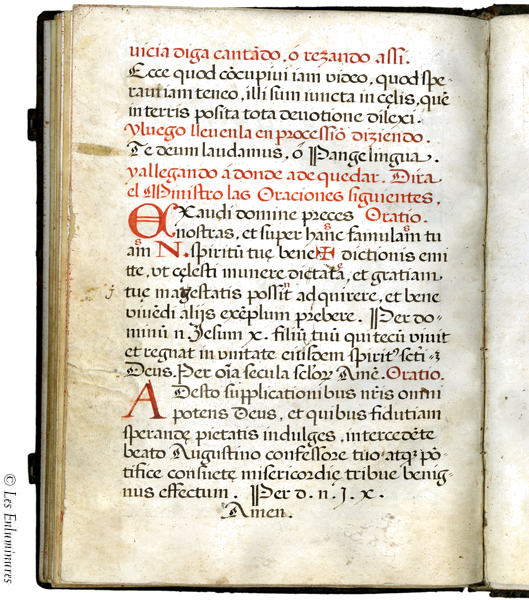 uicia diga cantãdo, ó rezando assi.
Ecce quod cõcupiui iam video, quod spe-
raui iam teneo, illi sum iuncta in cęlis, quẽ
in terris posita tota deuotione dilexi.
Yluego lleuenla en processiõ diziendo.
Te deum laudamus, ó Pange lingua.
yallegando á donde a de quedar. Dira
el Ministro las Oraciones siguientes.
EXaudi domine preces Oratio.
nostras, et super hanc famulam tu
am N. spiritũ tuę bene✠dictionis emi
tte, vt cęlesti munere dictata, et gratiam
j tuę magestatis possit ad quirere, et bene
viuẽdi alijs exẽplum prębere. Per do-
minũ n Jesum x. filiũ tuũ qui tecũ viuit
et regnat in vnitate eiusdem spirit9 scti z
Deus. Per oĩa secula seloꝝ Amẽ. Oratio.
ADesto supplicationibus nr̃is omni
potens Deus, et quibus fidutiam
sperandę pietatis indulges, intercedẽte
beato Augustino confessore tuo atqꝫ põ
tifice consuetę misericordię tribue benig-
nus effectum. Per d. n. J. x.
Amen.
© Les Enluminures